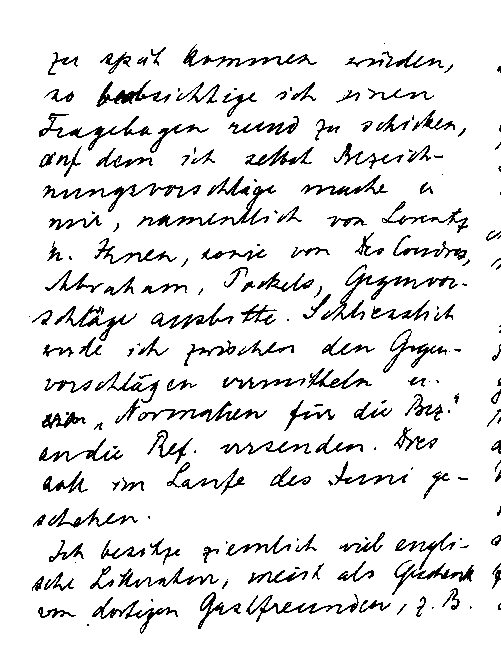 zu spät kommen würden,
so beabsichtige ich einen
Fragebogen rund zu schicken,
auf dem ich selbst Bezeich-
nungsvorschläge mache u
mir, namentlich von Lorentz
u. Ihnen, sowie von Des Coudres,
Abraham, Pockels, Gegenvor-
schläge ausbitte. Schliesslich
werde ich zwischen den Gegen-
vorschlägen vermitteln u.
„Normalien für die Bez."
an die Ref. versenden. Dies
soll im Laufe des Juni ge-
schehen.
Ich besitze ziemlich viel engli-
sche Litteratur, meist als Geschenk
von dortigen Gastfreunden, z. B.